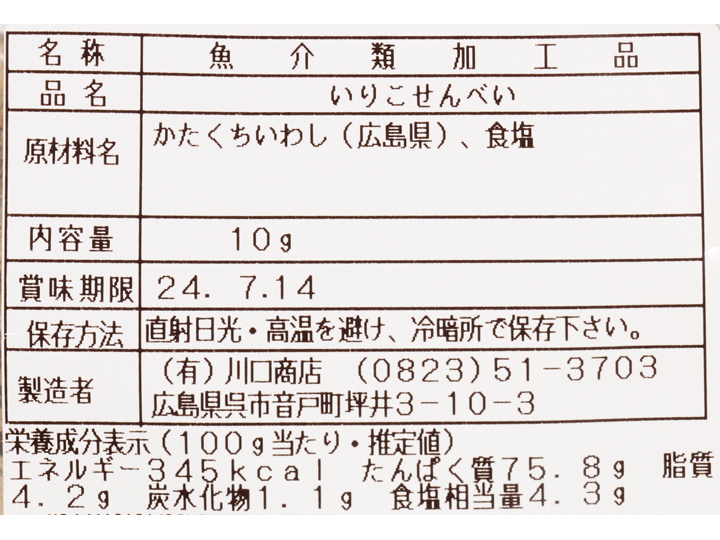 名称 魚介類加工品
品名 いりこせんべい
原材料名 かたくちいわし(広島県)、食塩
内容量 10g
賞味期限 24. 7.14
保存方法 直射日光・高温を避け、冷暗所で保存下さい。
製造者 (有)川口商店 (0823)51-3703
広島県呉市音戸町坪井3-10-3
栄養成分表示(100g当たり・推定値)
エネルギー345kcal たんぱく質75.8g 脂質
4.2g 炭水化物1.1g 食塩相当量4.3g